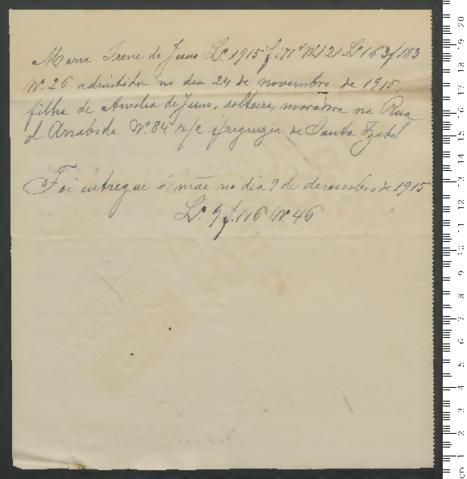 Maria Irene de Jesus Lº 1915 f 171 Nº 121 Lº 163 f 183
Nº 26 admitida no dia 24 de novembro de 1915,
filha de Amelia de Jesus, solteira, moradora na Rua
d Arrabida Nº 84 r/c. freguezia de Santa Izabel
Foi entregue á mãe no dia 9 de dezembro de 1915
Lº 9 f. 116 Nº 46